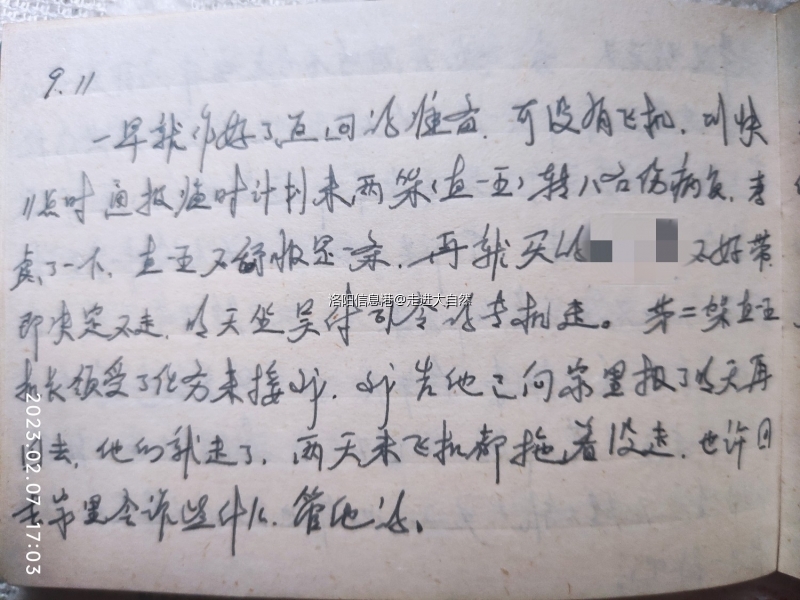 9.11
一早就作好了返回的准备，可没有飞机，叫快
11点时通报临时计划来两架（直一五）转八名伤病员，考
虑了一下，直五不舒服是一条，再就买的 不好带
即决定不走，明天坐吴付司令的专机走。第二架直五
机长领受了任务来接 ，告他已向家里报了明天再
回去，他们就走了，两天来飞机都拖着没走，也许回
去家里会说些什么，管他的，
洛阳信息港@走进大自然
2023.02.07 17:03